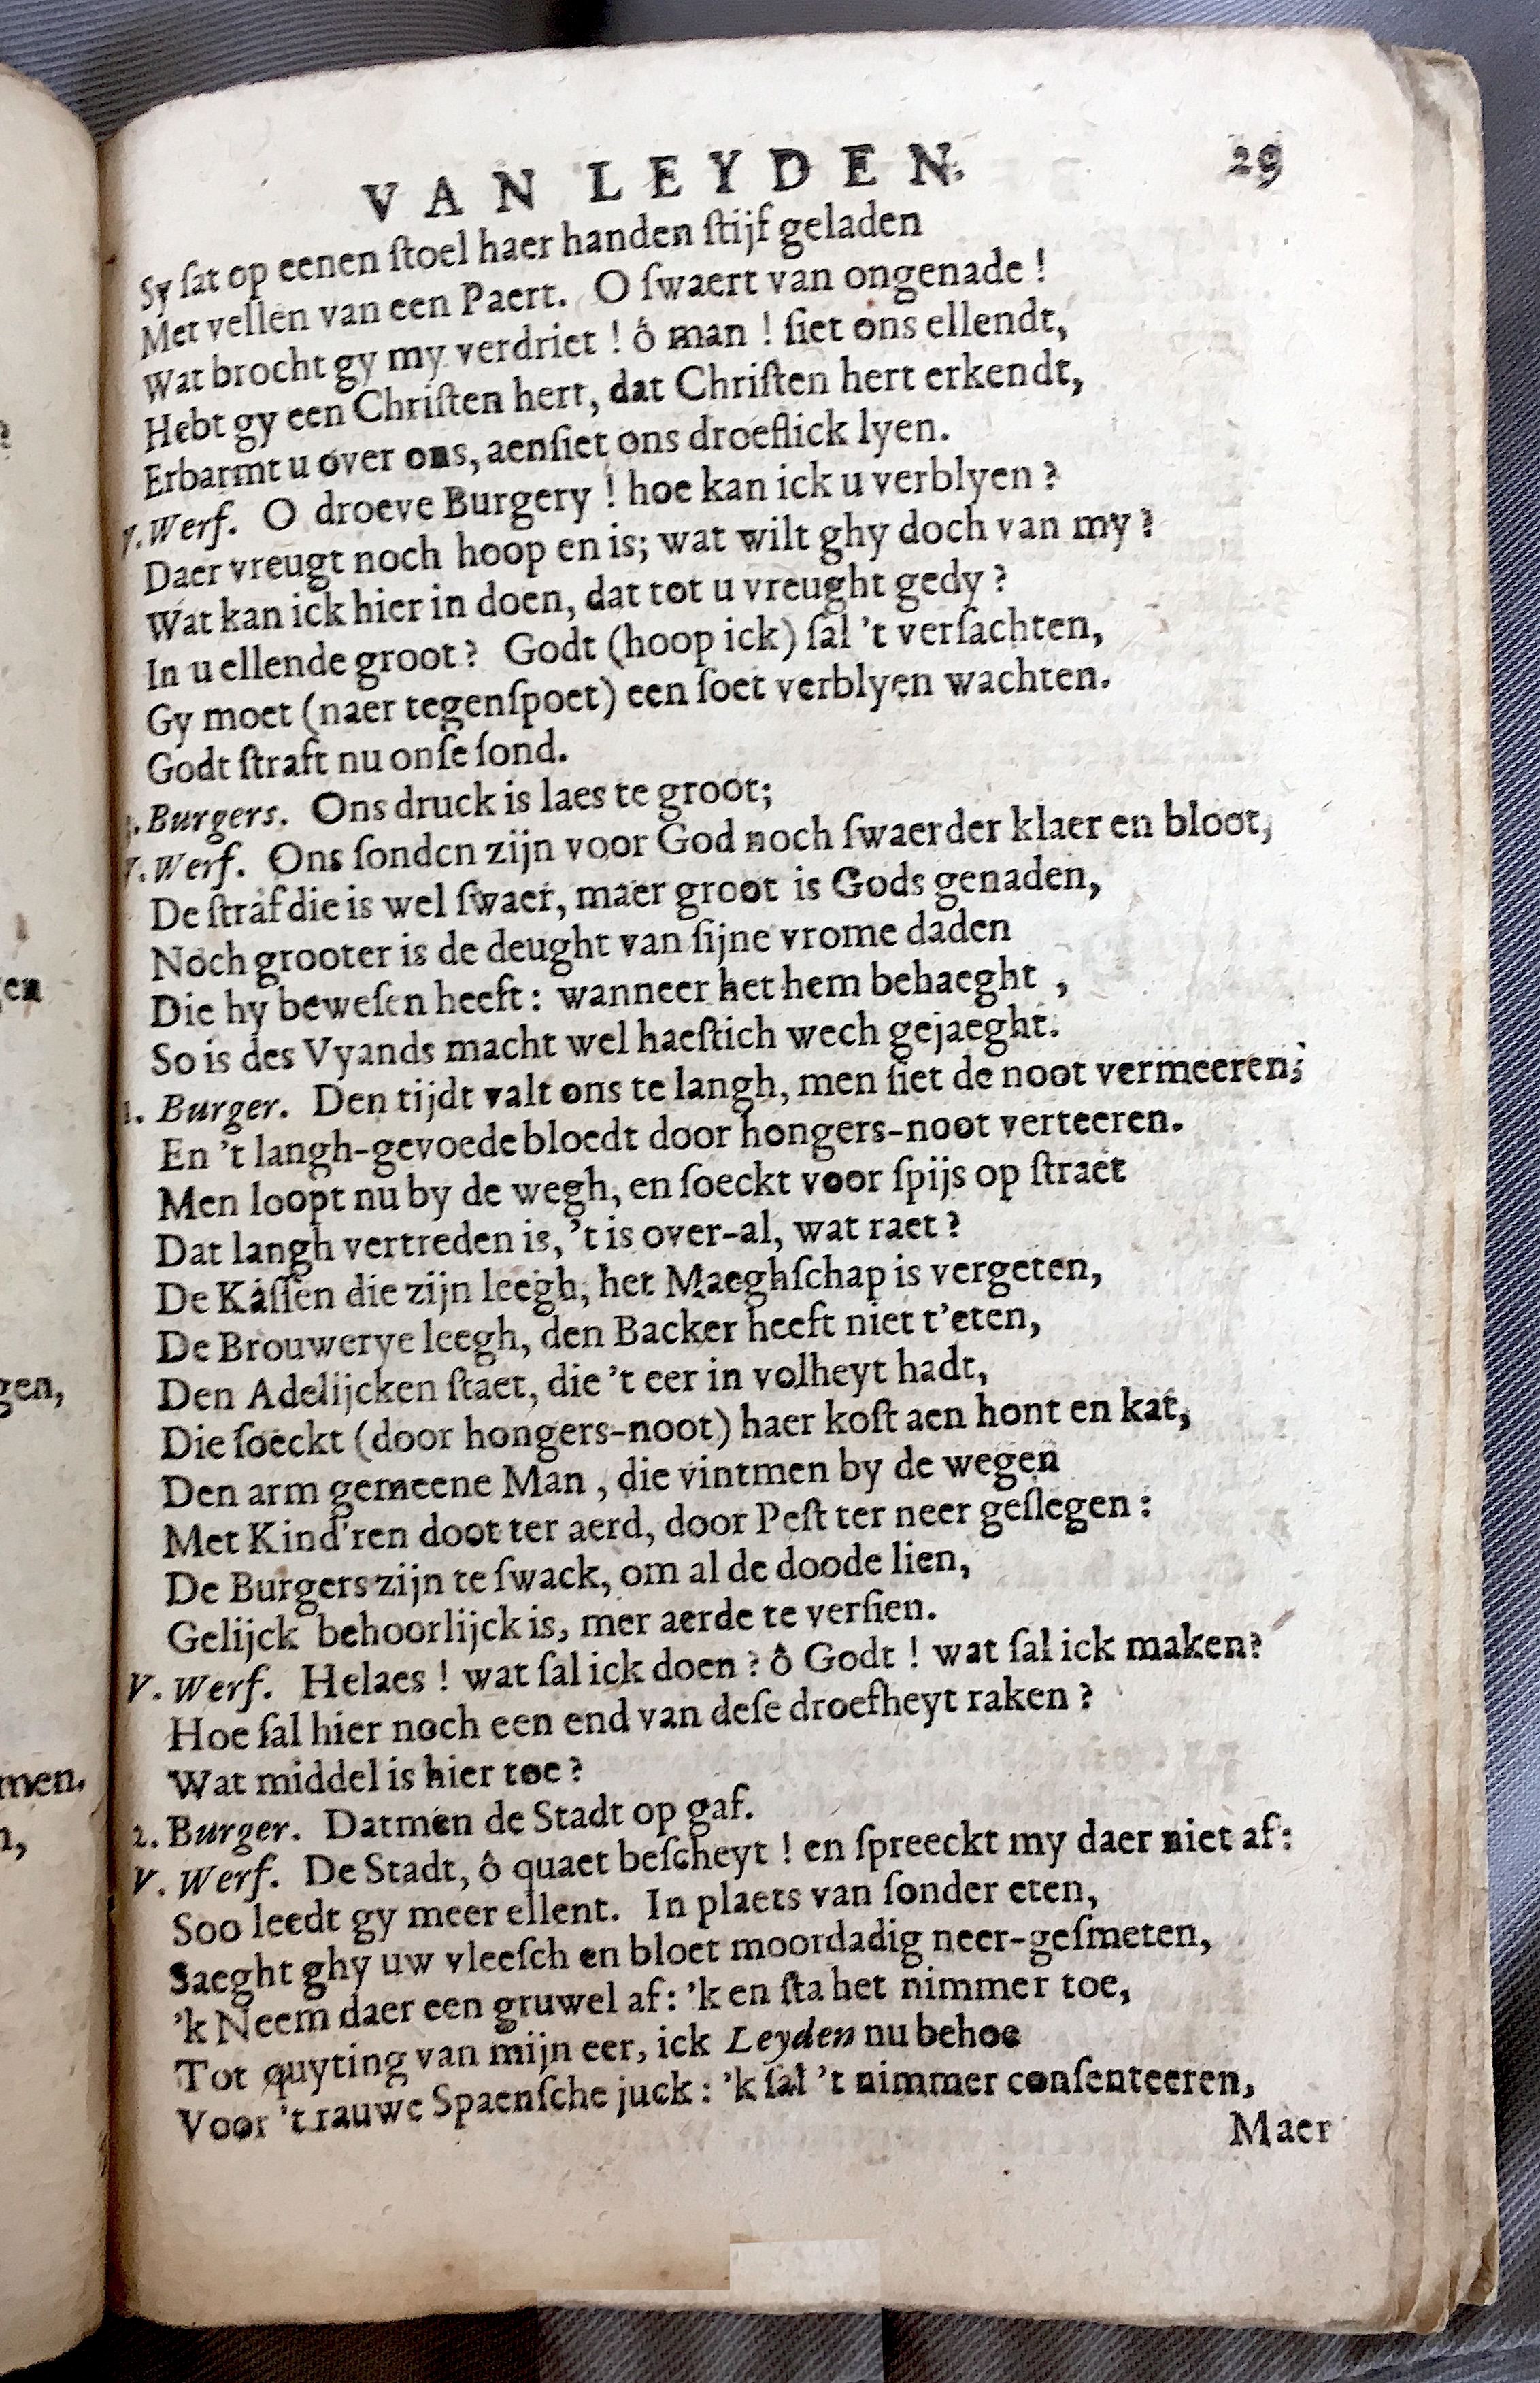 VAN LEYDEN. 29
Sy ſat op eenen ſtoel haer handen ſtijf geladen
Met vellen van een Paert. O ſwaert van ongenade !
Wat brocht gy my verdriet ! ô man ! ſiet ons ellendt,
Hebt gy een Chriſten hert, dat Chriſten hert erkendt,
Erbarmt u over ons, aenſiet ons droeflick lyen.
V. Werf. O droeve Burgery ! hoe kan ick u verblyen ?
Daer vreugt noch hoop en is; wat wilt ghy doch van my ?
Wat kan ick hier in doen, dat tot u vreught gedy ?
In u ellende groot ? Godt (hoop ick) ſal 't verſachten,
Gy moet (naer tegenſpoet) een ſoet verblyen wachten.
Godt ſtraft nu onſe ſond.
. Burgers. Ons druck is laes te groot;
V. Werf. Ons ſonden zijn voor God noch ſwaerder klaer en bloot,
De ſtraf die is wel ſwaer, maer groot is Gods genaden,
Noch grooter is de deught van ſijne vrome daden
Die hy beweſen heeft : wanneer het hem behaeght ,
So is des Vyands macht wel haeſtich wech gejaeght.
1. Burger. Den tijdt valt ons te langh, men ſiet de noot vermeeren;
En 't langh-gevoede bloedt door hongers-noot verteeren.
Men loopt nu by de wegh, en ſoeckt voor ſpijs op ſtraet
Dat langh vertreden is, 't is over-al, wat raet ?
De Kaſſen die zijn leegh, het Maeghſchap is vergeten,
De Brouwerye leegh, den Backer heeft niet t'eten,
Den Adelijcken ſtaet, die 't eer in volheyt hadt,
Die ſoeckt (door hongers-noot) haer koſt aen hont en kat,
Den arm gemeene Man , die vintmen by de wegen
Met Kind'ren doot ter aerd, door Peſt ter neer geſlegen :
De Burgers zijn te ſwack, om al de doode lien,
Gelijck behoorlijck is, met aerde te verſien.
V. Werf. Helaes ! wat ſal ick doen ? ô Godt ! wat ſal ick maken?
Hoe ſal hier noch een end van deſe droefheyt raken ?
Wat middel is hier toe ?
2. Burger. Datmen de Stadt op gaf.
V. Werf. De Stadt, ô quaet beſcheyt ! en ſpreeckt my daer niet af :
Soo leedt gy meer ellent. In plaets van ſonder eten,
Saeght ghy uw vleeſch en bloet moordadig neer-geſmeten,
'k Neem daer een gruwel af : 'k en ſta het nimmer toe,
Tot quyting van mijn eer, ick Leyden nu behoe
Voor 't rauwe Spaenſche juck : 'k ſal 't nimmer conſenteeren,
Maer
gen,
men.